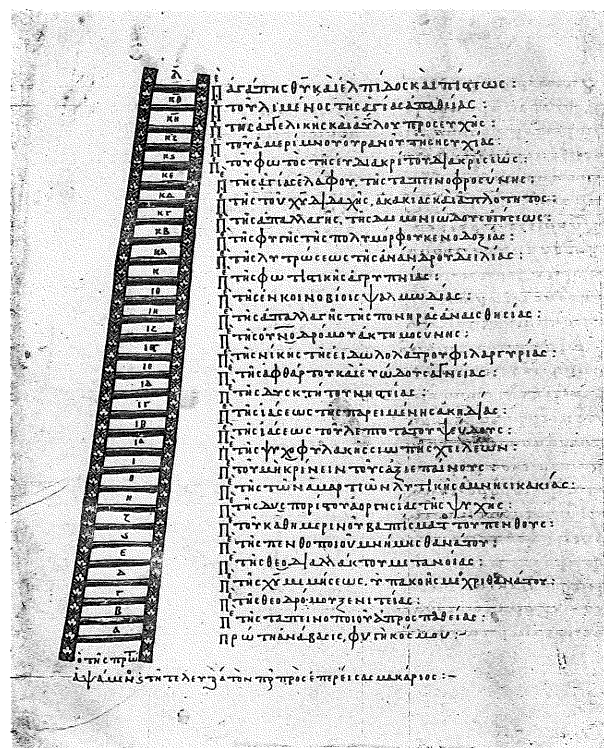 λ
κθ
κη
κζ
κϛ
κε
κδ
κγ
κβ
κα
κ
ιθ
ιη
ιζ
ιϛ
ιε
ιδ
ιγ
ιβ
ια
ι
θ
η
ζ
ϛ
ε
δ
γ
β
α
Πε ἀγάπης θυ καὶ ἐλπίδος καὶ πίστεως :
Πε τοῦ λιμένος τῆς ἁγίας ἀπαθείας :
Πε τῆς ἀγγελικῆς καὶ ἀΰλου προσευχῆς :
Πε τοῦ ἀμερίμνου οὐρανοῦ τῆς ἡσυχίας :
Πε τοῦ φωτὸς τῆς εὐδιακρίτου διακρίσεως :
Πε τῆς ἁγίας ἐλάφου, τῆς ταπεινοφροσύνης :
Πε τῆς τοῦ χυ διδαχῆς, ἀκακίας καὶ ἁπλότητος :
Πε τῆς ἀπαλλαγῆς, τῆς δαιμονιώδους οἰήσεως :
Πε τῆς φυγῆς τῆς πολυμόρφου κενοδοξίας :
Πε τῆς λυτρώσεως τῆς ἀνάνδρου δειλίας :
Πε τῆς φωτιστικῆς ἀγρυπνίας :
Πε τῆς ἐν κοινοβίοις ψαλμωδίας :
Πε τῆς ἀπαλλαγῆς τῆς πονηρᾶς ἀναισθησίας :
Πε τῆς οὐνοδρόμου ἀκτημοσύνης :
Πε τῆς νίκης τῆς εἰδωλολάτρου φιλαργυρίας :
Πε τῆς ἀφθάρτου καὶ εὐώδους ἁγνείας :
Πε τῆς δυσκτήτου νηστείας :
Πε τῆς ἰάσεως τῆς παρειμένης ἀκηδίας :
Πε τῆς ἰάσεως τοῦ λεποτάτου ψεύδους :
Πε τῆς ψυχοφυλακῆς σιωπῆς χειλέων :
Πε τοῦ μὴ κρίνειν τοὺς ἀξιεπαίνους :
Πε τῆς τῶν ἁμαρτιῶν λυτικῆς ἀμνησικακίας :
Πε τῆς δυσπορίστου ἀοργησίας τῆς ψυχῆς :
Πε τοῦ καθημερινοῦ βαπτίσματ τοῦ πένθους :
Πε τῆς πενθοποιοῦ μνήμης θανάτου :
Πε τῆς θεοδιαλλάκτου μετανοίας :
Πε τῆς χυ μιμήσεως, ὑπακοῆς μέχρι θανάτου :
Πε τῆς θεοδρόμου ξενιτείας :
Πε τῆς ταπεινοποιοῦ ἀπροσπαθείας :
πρώτη ἀνάβασις, φυγὴ κόσμου :-
ὁ τῆς πρώτ
ἁψάμενος τῇ τελευταία τὸν πόδα προσεπερείσας μακάριος :-